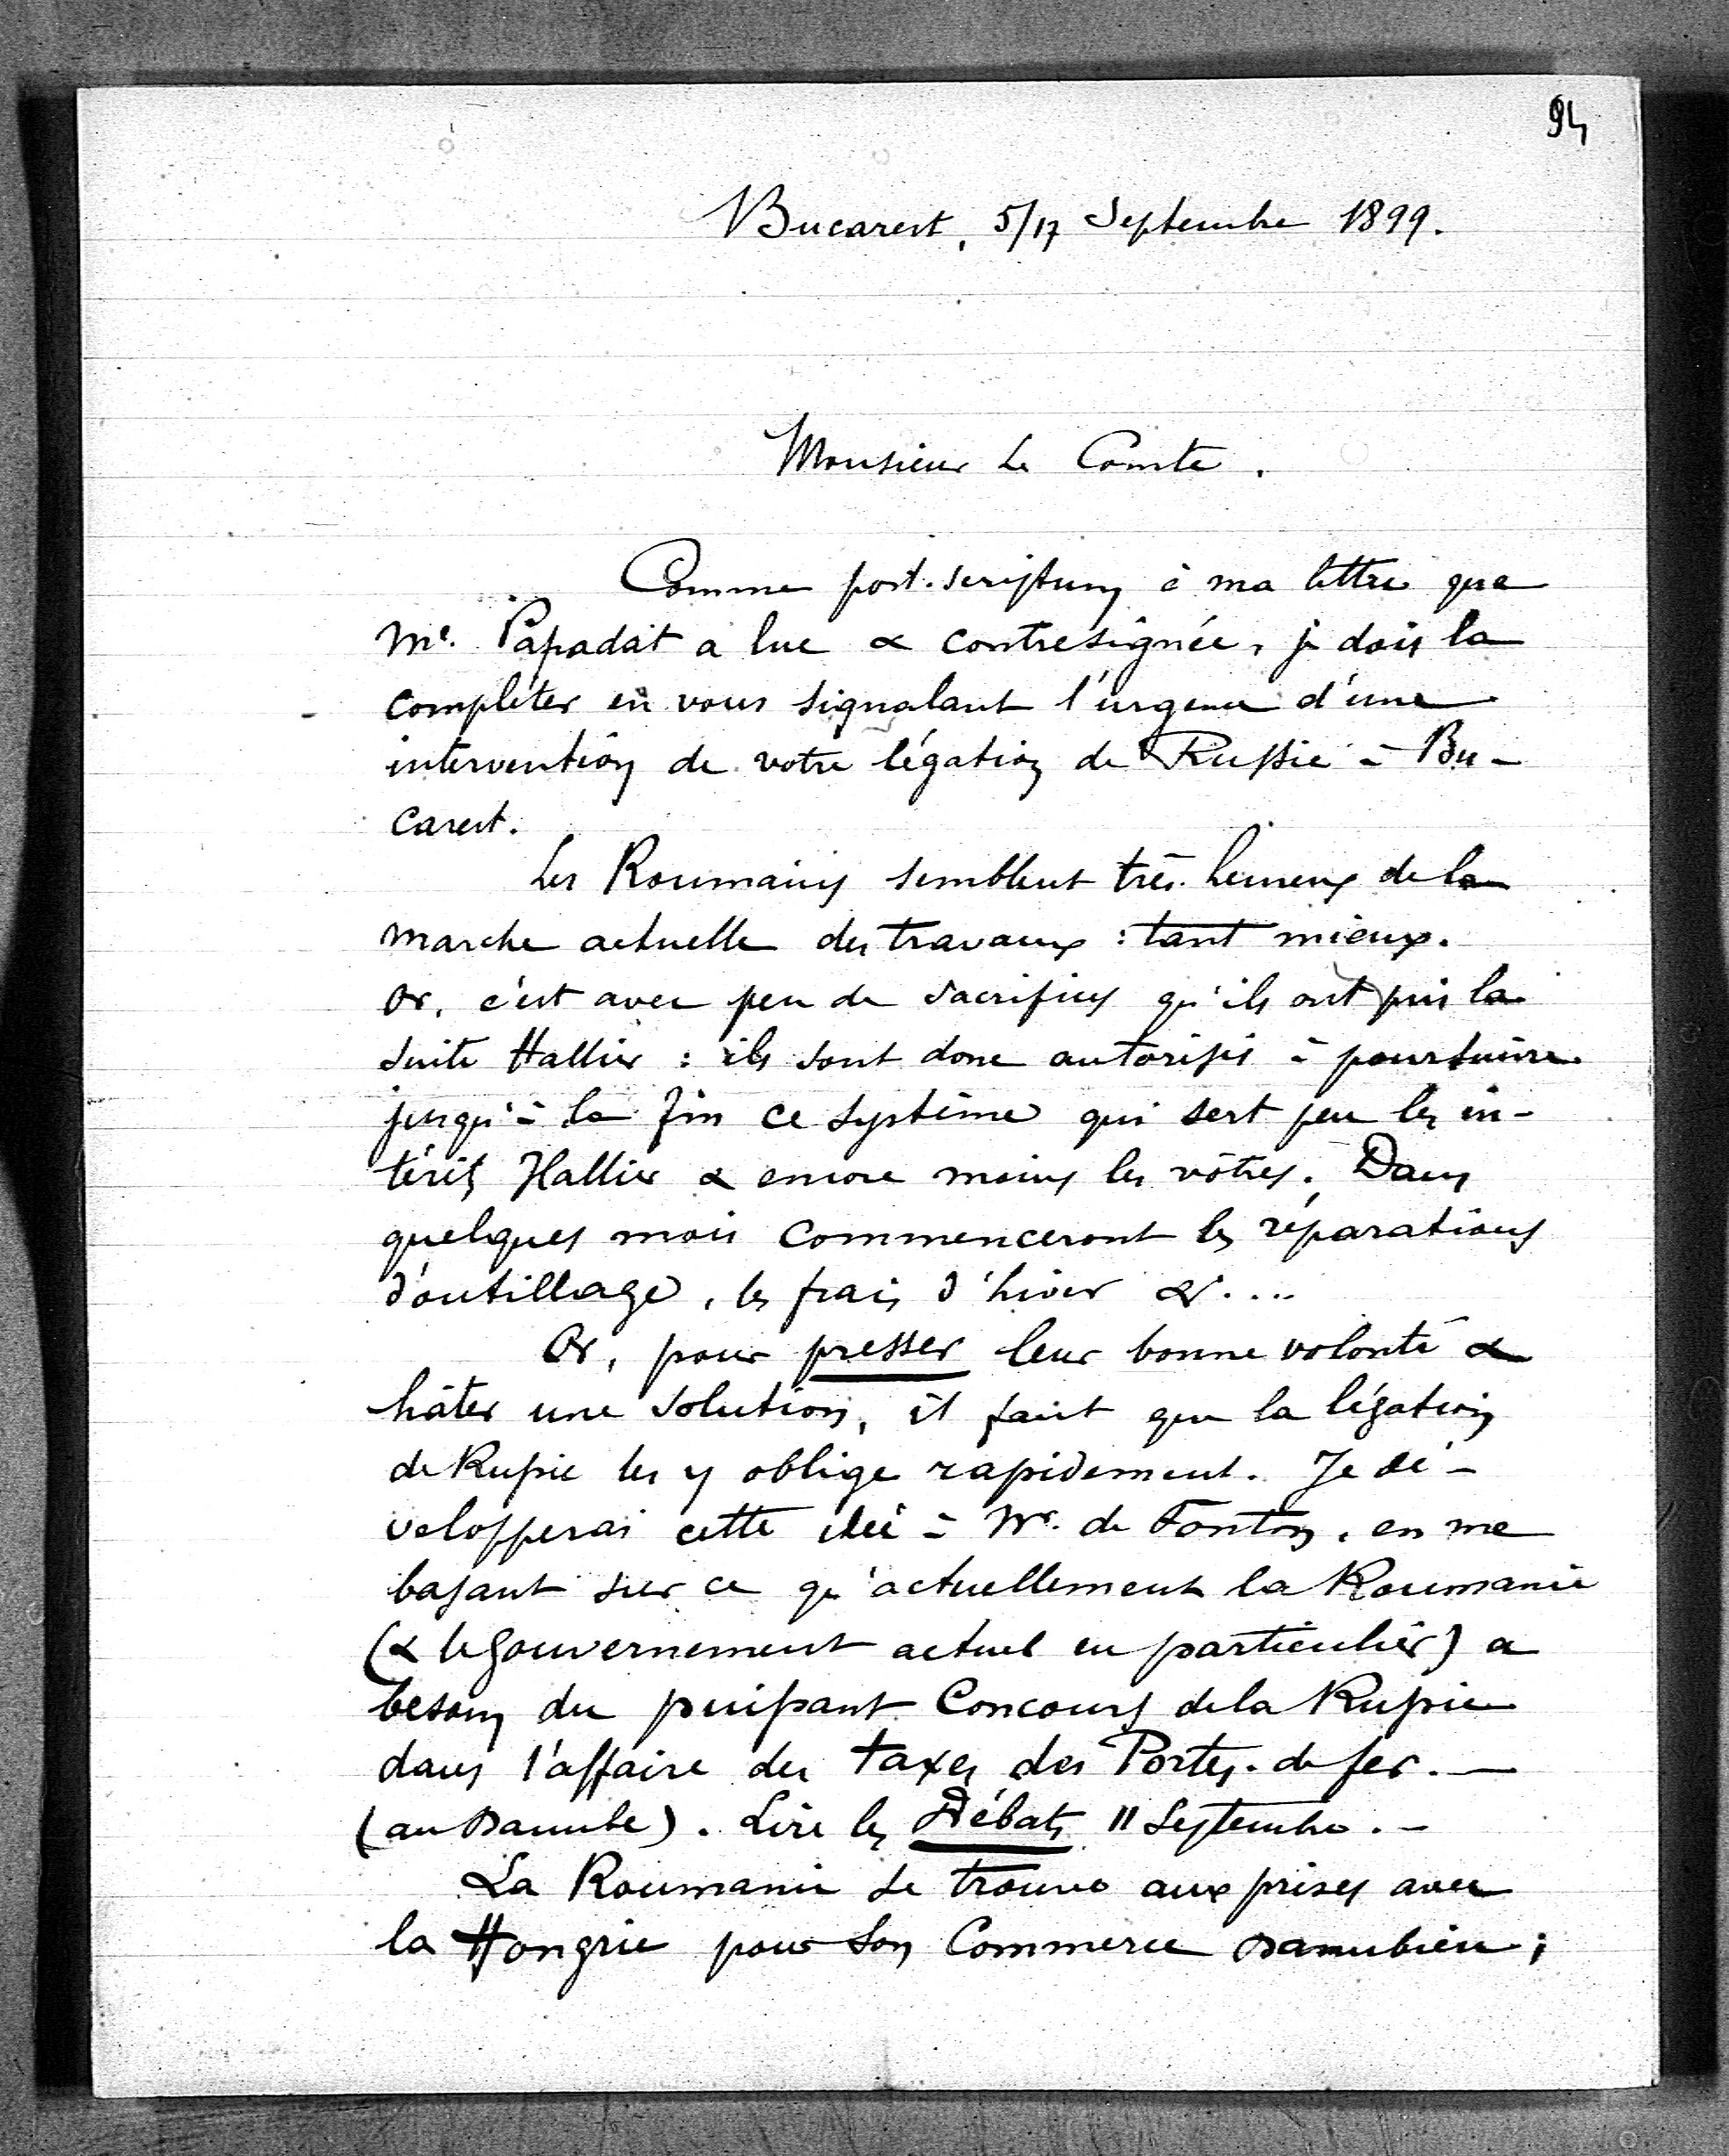 94
Bucarest, 5/17 Septembre 1899.
Monsieur Le Comte.
Comme post-scriptum à ma lettre que
Mr. Papadat a lue & contresignée, je dois la
compléter en vous signalant l'urgence d'une
intervention de votre légation de Russie à Bu-
carest.
Les Roumains semblent très heureux de la
marche actuelle des travaux : tant mieux.
Or, c'est avec peu de sacrifices qu'ils ont pris la
suite Hallier : ils sont donc autorisés à poursuivre
jusqu'à la fin ce système qui sert peu les in-
térêts Hallier & encore moins les vôtres. Dans
quelques mois commenceront les réparations
d'outillage, les frais d'hiver &....
Or, pour presser leur bonne volonté &
hâter une solution, il faut que la légation
de Russie les y oblige rapidement. Je dé-
velopperai cette idée à Mr. de Fonton, en me
basant sur ce qu'actuellement la Roumanie
(& le Gouvernement actuel en particulier) a
besoin du puissant Concours de la Russie
dans l'affaire des taxes des Portes-de fer.—
(au Danube). Lire les Débats 11 Septembre.-
La Roumanie se trouve aux prises avec
la Hongrie pour son Commerce Danubien;